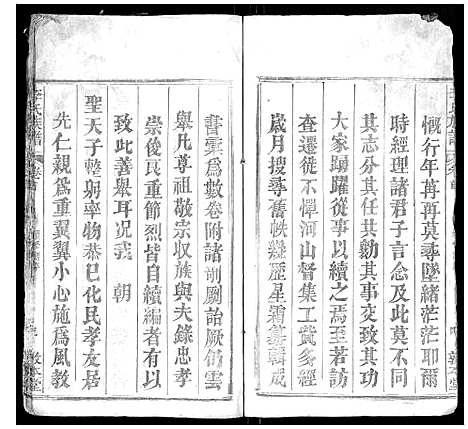 慨行年苒再莫尋墜緒茫茫耶爾
時經理諸君子言念及此莫不同
其志分其任共勷其事交致其功
大家踴躍從事以續之焉至若訪
查遷徙不憚河山督集工貲多經
歲月搜尋舊帙幾歷星霜纂輯成
書彙爲數卷附諸剞劂詒厥仍雲
舉凡尊祖敬宗收族與夫錄忠孝
崇俊良重節烈皆自續編者有以
致此善舉耳况我 朝
聖天子整躬率物恭己化民孝友居
先仁親爲重翼翼小心施爲風教
李氏族譜
敦本堂